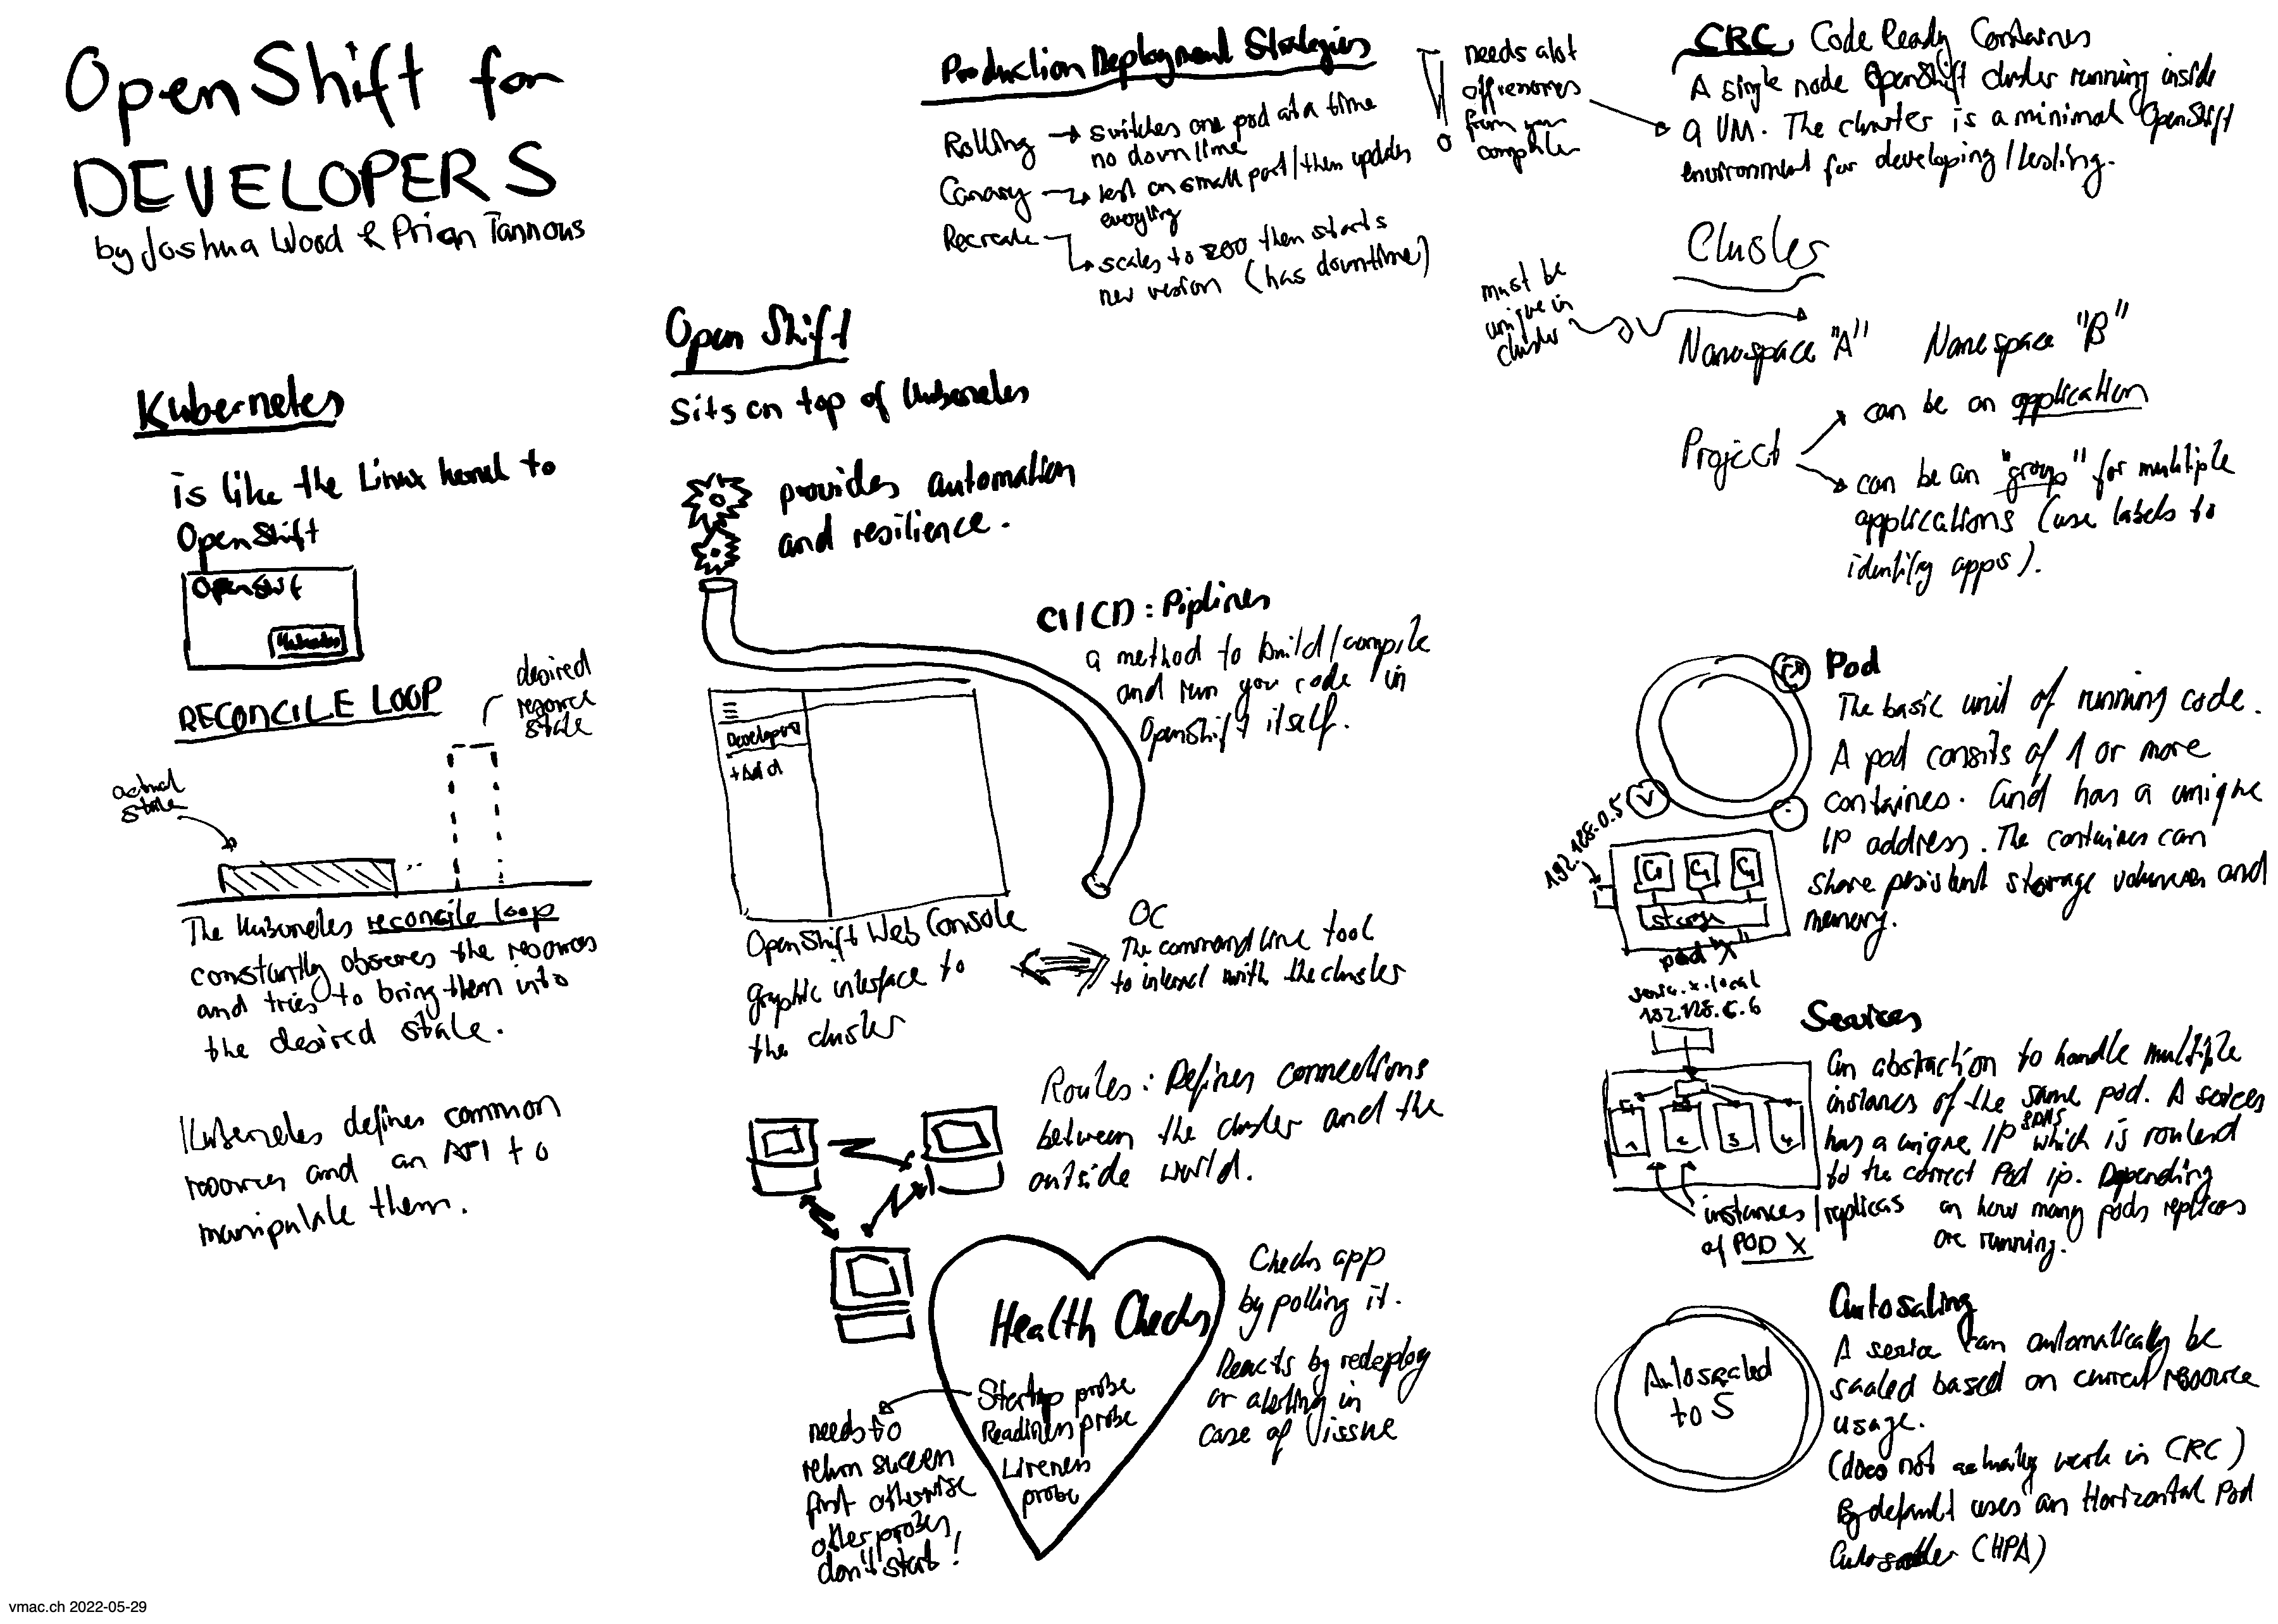 OpenShift for
DEVELOPERS
by Joshua Wood & Brian Tannous
Kubernetes
is like the Linux kernel to
OpenShift
OpenShift
Kubernetes
RECONCILE LOOP
desired
resource
state
actual
state
The Kubernetes reconcile loop
constantly observes the resources
and tries to bring them into
the desired state.
Kubernetes defines common
resources and an API to
manipulate them.
Open Shift
Sits on top of Kubernetes
provides automation
and resilience.
CI/CD: Piplines
a method to build/compile
and run your code in
OpenShift itself.
Developer
+Add
OpenShift Web Console
graphic interface to
the cluster
OC
The command line tool
to interact with the cluster
Routes: Defines connections
between the cluster and the
outside world.
Health Checks
Startup probe
Readiness probe
Liveness
probe
needs to
return success
first otherwise
other probes
don't start!
Checks app
by polling it.
Reacts by redeploy
or alerting in
case of issue
Production Deployment Strategies
Rolling → switches one pod at a time
no downtime
Canary → test on small part/then updates
everyting
Recreate → scales to zero then starts
new version (has downtime)
needs alot
off resources
from your
computer
CRC, Code Ready Containers
A single node OpenShift cluster running inside
a VM. The cluster is a minimal OpenShift
environment for developing/testing.
Cluster
must be
unique in
cluster
Namespace "A" Namespace "B"
Project
can be an application
can be an "group" for multiple
applications (use labels to
identify apps).
Pod
The basic unit of running code.
A pod consits of 1 or more
containers. And has a unique
IP address. The containers can
share persistent storage volumes and
memory.
192.168.0.5
storage
pod "X"
service.x.local
Services
An abstraction to handle multiple
instances of the same pod. A services
has a unique IP &DNS which is routend
to the correct Pod ip. Depending
on how many pods replicas
are running.
1 2 3 4
instances/replicas
of POD X
Autosaling
A service can automatically be
scaled based on current resource
usage.
(does not actually work in CRC)
By default uses an Horizontal Pod
Autoscaler (HPA)
Autoscaled
to 5
vmac.ch 2022-05-29